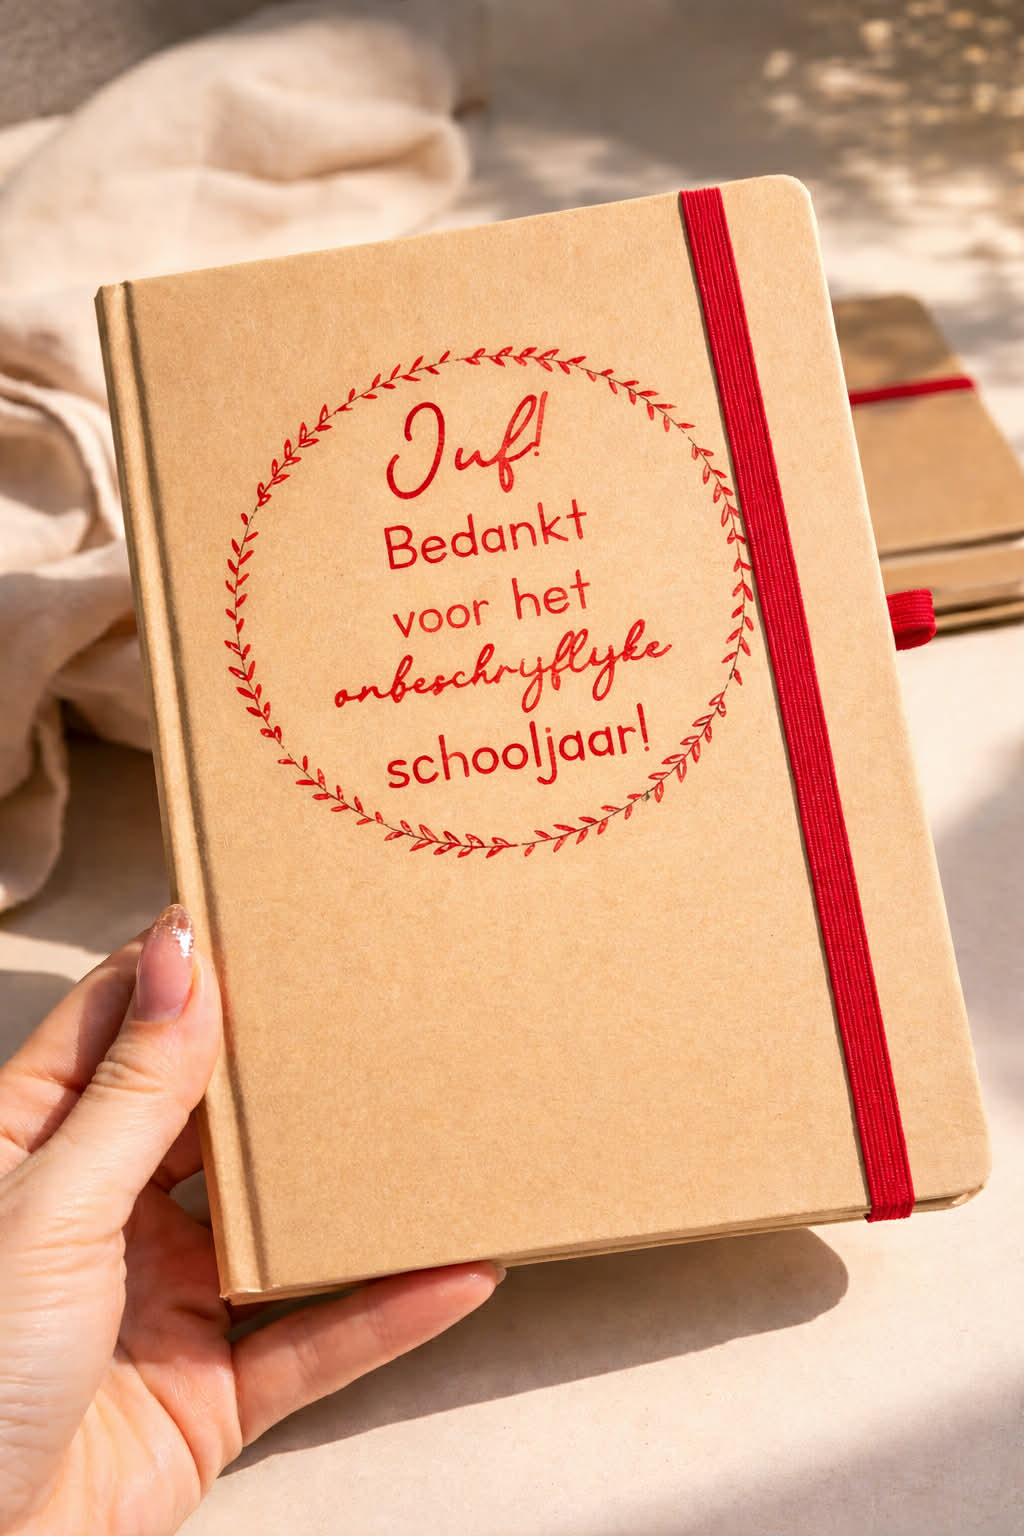 Juf!
Bedankt
voor het
onbeschryflyke
schooljaar!